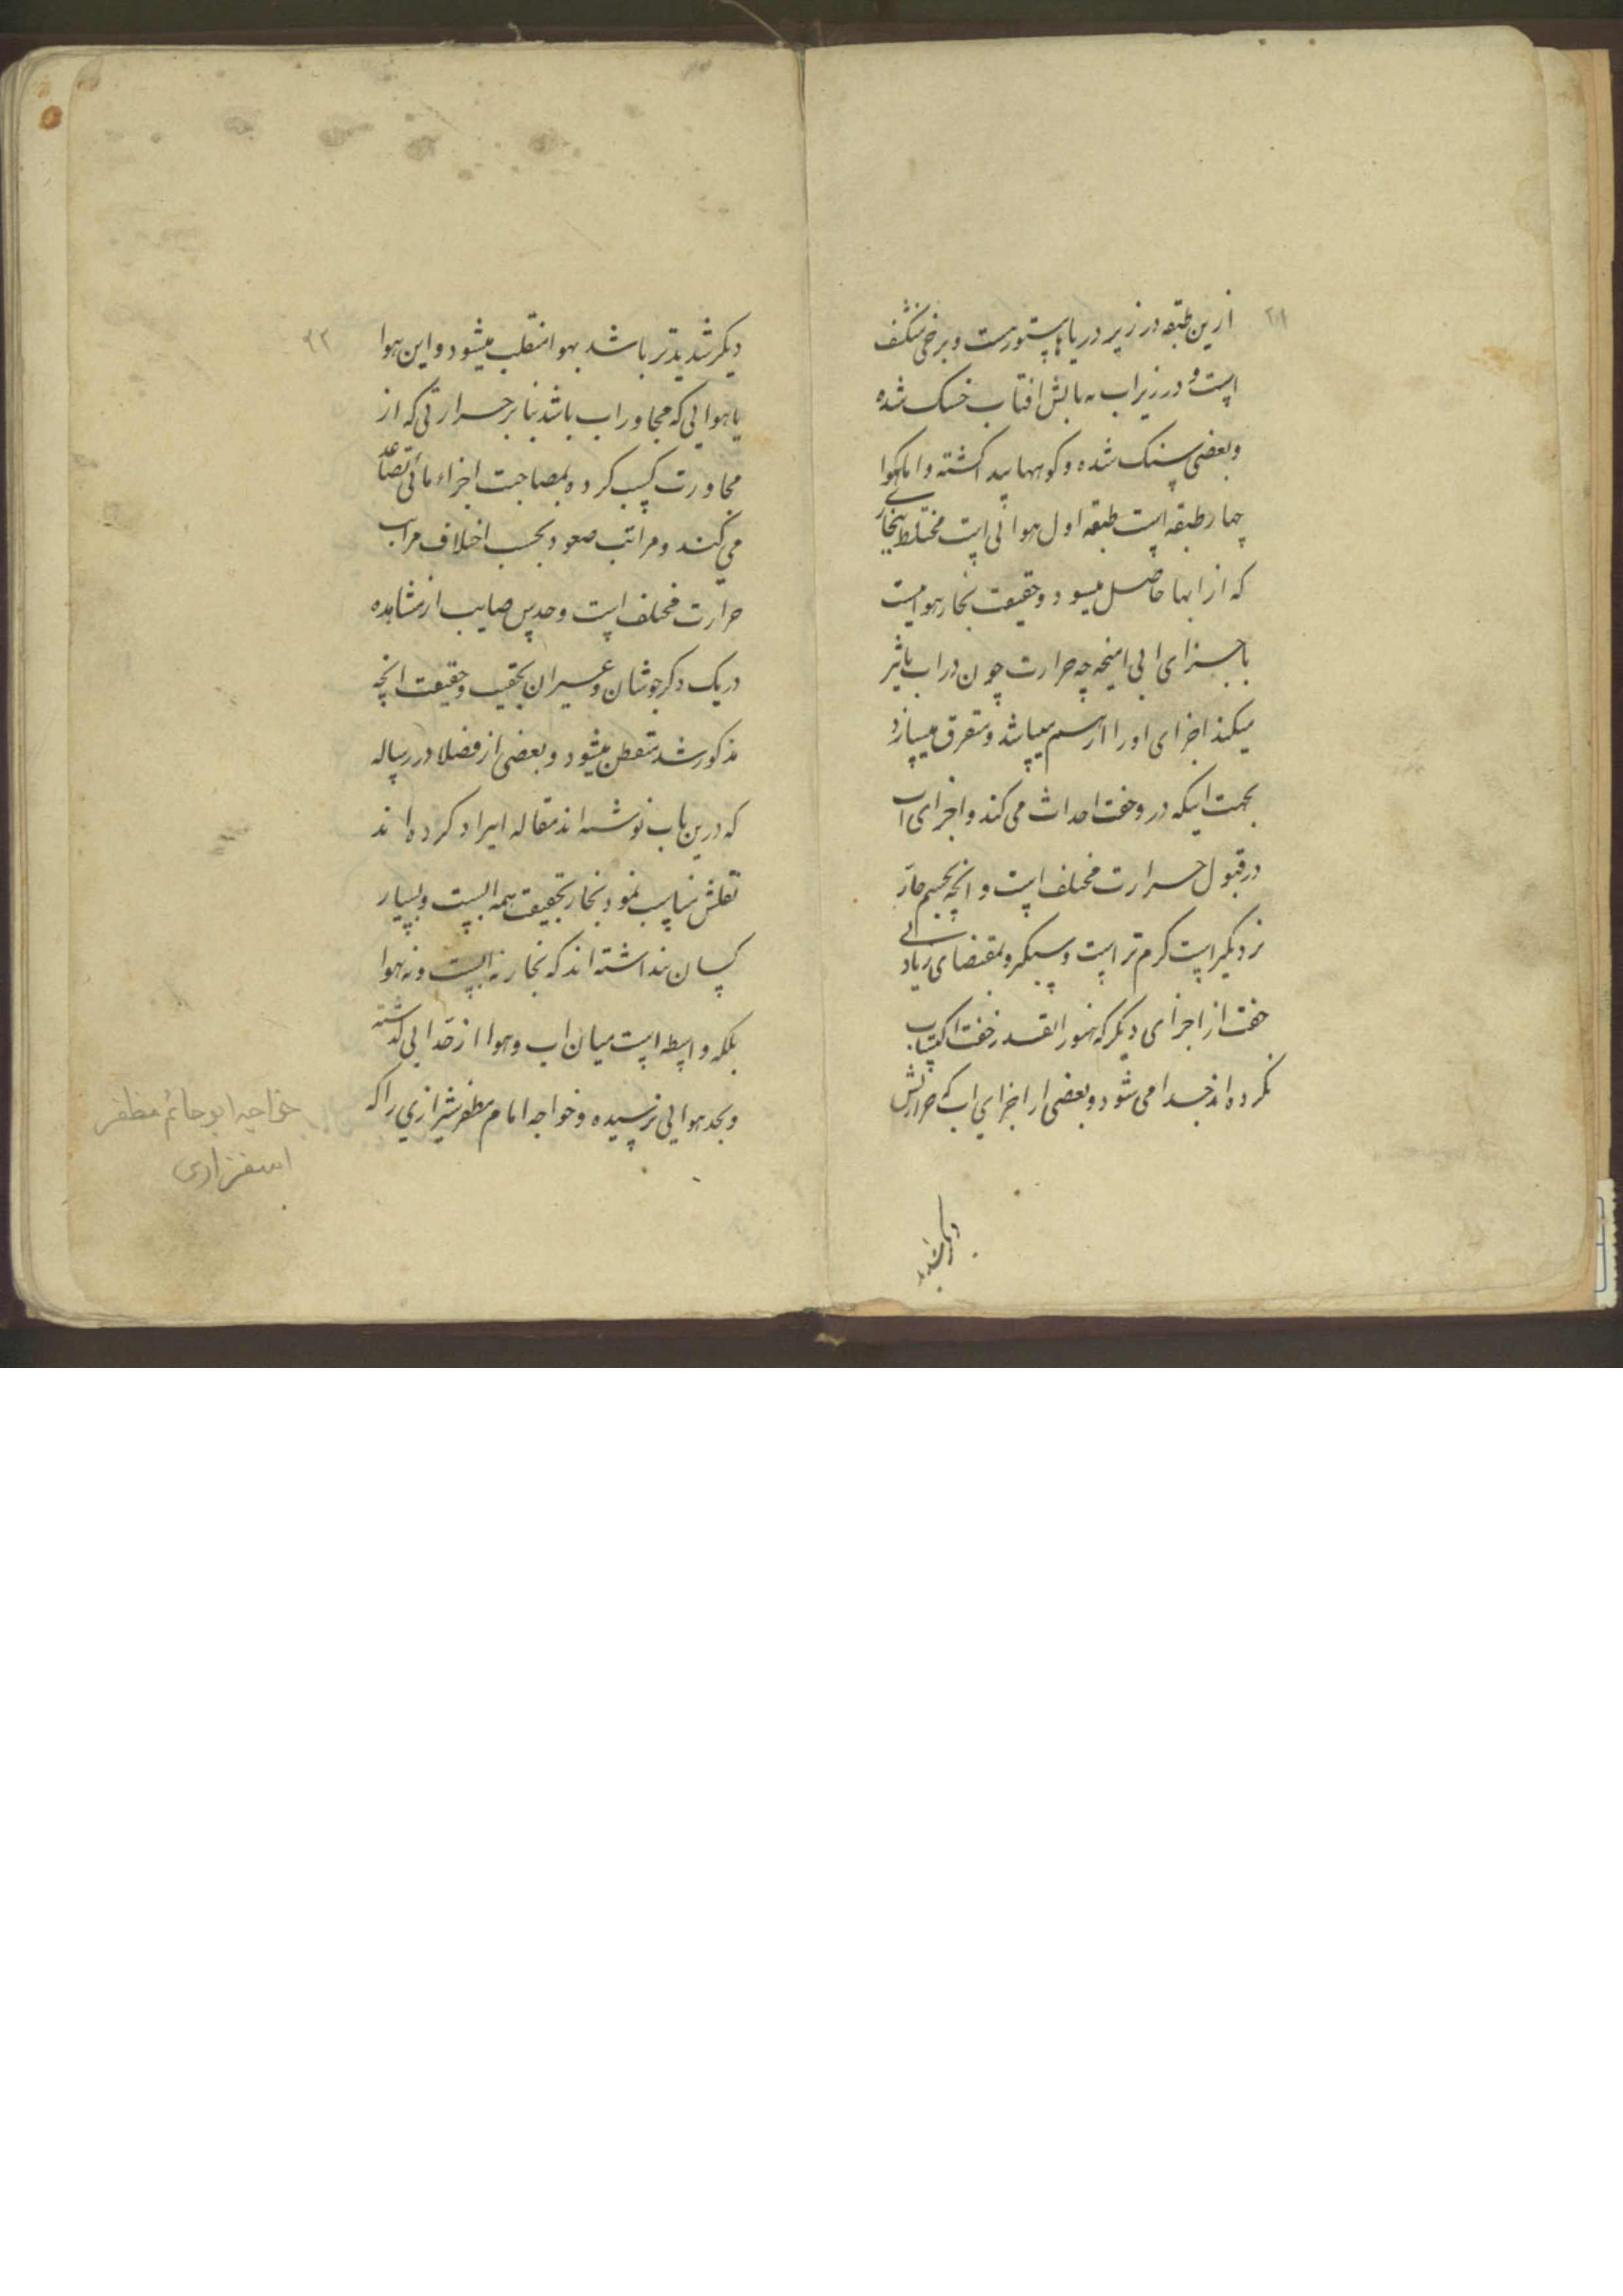 ازین طبقه در زیر دریاها مستورست و برخی منکشف
است و در زیر اب بتابش افتاب خشک شده
و بعضی سنک شده و کوهها پیدا کشته و اما هوا
چهار طبقه است طبقه اول هوائی است مختلط ببخاری
که از ابها حاصل میشود و حقیقت بخار هواییست
باجزای ابی امیخته چه حرارت چون در اب تاثیر
میکند اجزای او را از هم میپاشد و متفرق میسازد
بجهت اینکه در و خفت احداث می کند و اجزای اب
در قبول حرارت مختلف است و انچه بجسم حارّ
نزدیکتر است کرم تر است و سبکتر و بمقتضای زیادتی
خفت از اجزای دیکر که هنوز انقدر خفت اکتساب
نکرده اند جدا می شود و بعضی از اجزای اب که حرارتش
۲۱
دیکر شدیدتر باشد بهوا منقلب میشود و این هوا
یا هوایی که مجاور اب باشد بنابر حرارتی که از
مجاورت کسب کرده بمصاحبت اجزاء مائی تصاعد
می کند و مراتب صعود بحسب اختلاف مراتب
حرارت مختلف است و حدس صایب از مشاهده
دیک دکر جوشان و غیران بحقیت و حقیقت انچه
مذکور شد متفطن میشود و بعضی از فضلا در رساله
که درین باب نوشته اند مقاله ایراد کرده اند
نقلش مناسب نمود بخار بحقیقت همه ابیست و بسیار
کسان پنداشته اند که بخار نه ابیست و نه هوا
بلکه واسطه است میان اب و هوا از حدّ ابی کذشته
و بحد هوایی نرسیده و خواجه امام مظفر شیرازی را که
۹۲
خواجه ابوحاتم مظفر
اسفزاری